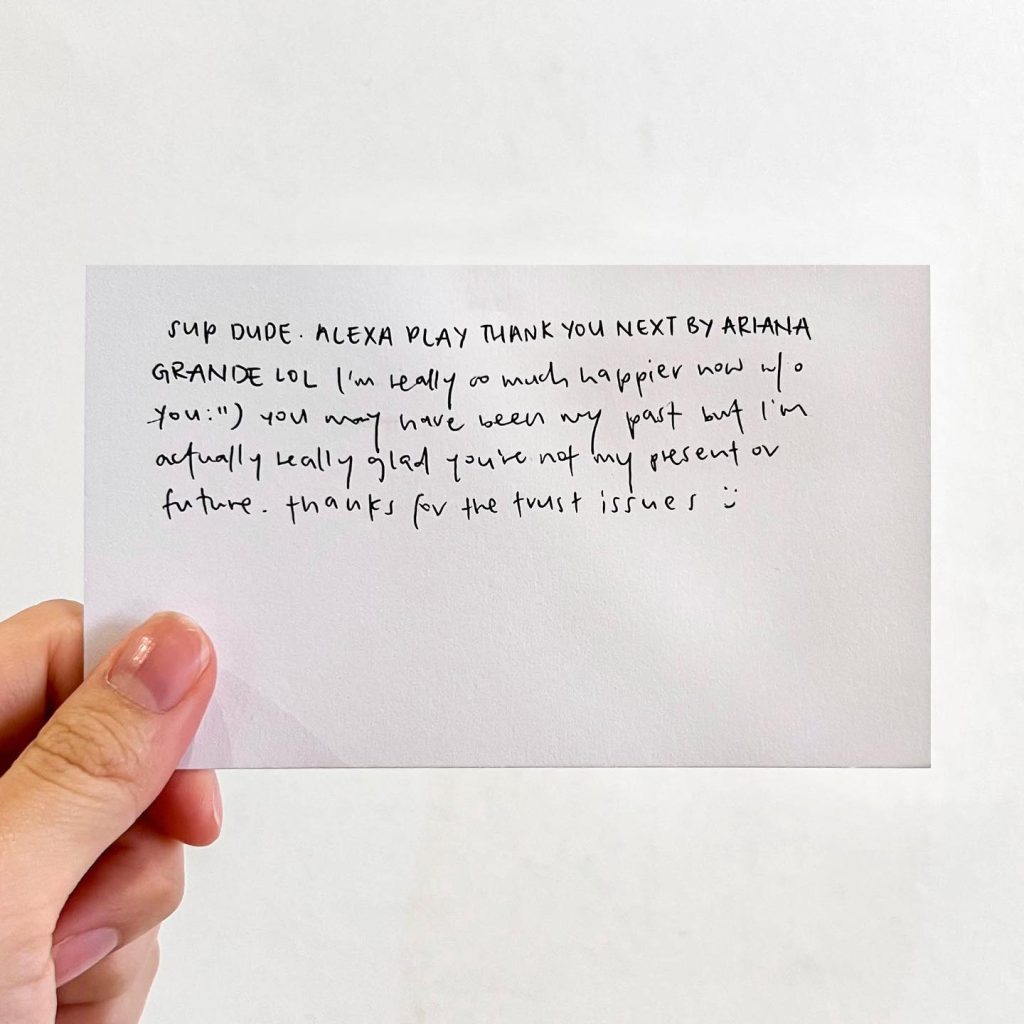 sup DUDE. ALEXA PLAY THANK YOU NEXT BY ARIANA
GRANDE LOL I'm really so much happier now w/o
you:") you may have been my past but I'm
actually really glad you're not my present or
future. thanks for the trust issues :)